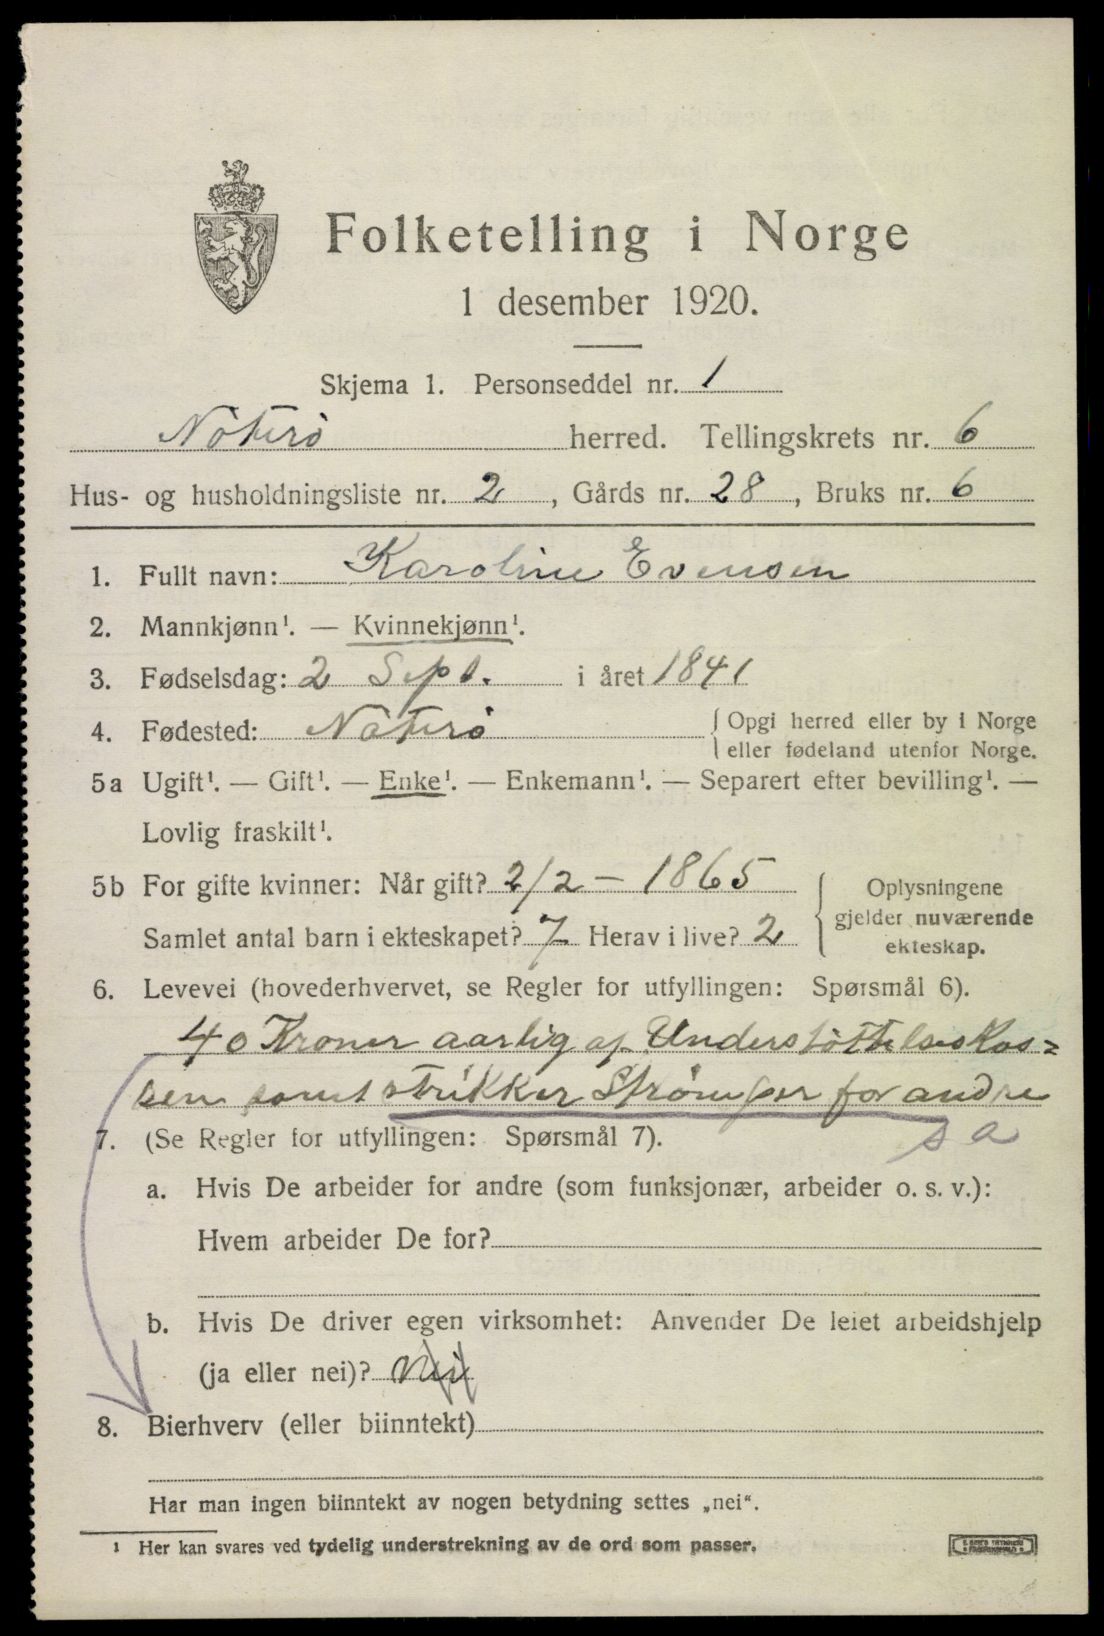 Folketelling i Norge
1 desember 1920.
Skjema 1. Personseddel nr. 1
Nøterø herred. Tellingskrets nr. 6
Hus- og husholdningsliste nr. 2, Gårds nr. 28, Bruks nr. 6
1. Fullt navn: Karoline Evensen
2. Mannkjønn¹. — Kvinnekjønn¹.
3. Fødselsdag: 2 Sept. i året 1841
4. Fødested: Nøterø { Opgi herred eller by i Norge
eller fødeland utenfor Norge.
5a Ugift¹. — Gift¹. — Enke¹. — Enkemann¹. — Separert efter bevilling¹. —
Lovlig fraskilt¹.
5b For gifte kvinner: Når gift? 2/2 – 1865
Samlet antal barn i ekteskapet? 7 Herav i live? 2
{ Oplysningene
gjelder nuværende
ekteskap.
6. Levevei (hovederhvervet, se Regler for utfyllingen: Spørsmål 6).
40 Kroner aarlig af Understøttelseskas=
sen samt strikker Strømper for andre
s a
7. (Se Regler for utfyllingen: Spørsmål 7).
a. Hvis De arbeider for andre (som funksjonær, arbeider o. s. v.):
Hvem arbeider De for?
b. Hvis De driver egen virksomhet: Anvender De leiet arbeidshjelp
(ja eller nei)? Nei
8. Bierhverv (eller biinntekt)
Har man ingen biinntekt av nogen betydning settes „nei“.
¹ Her kan svares ved tydelig understrekning av de ord som passer.